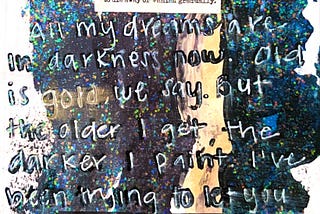 to die away or vanish gradually.
All my dreams are
in darkness now. Old
is gold, we say. But
the older I get, the
darker I paint. I've
been trying to let you